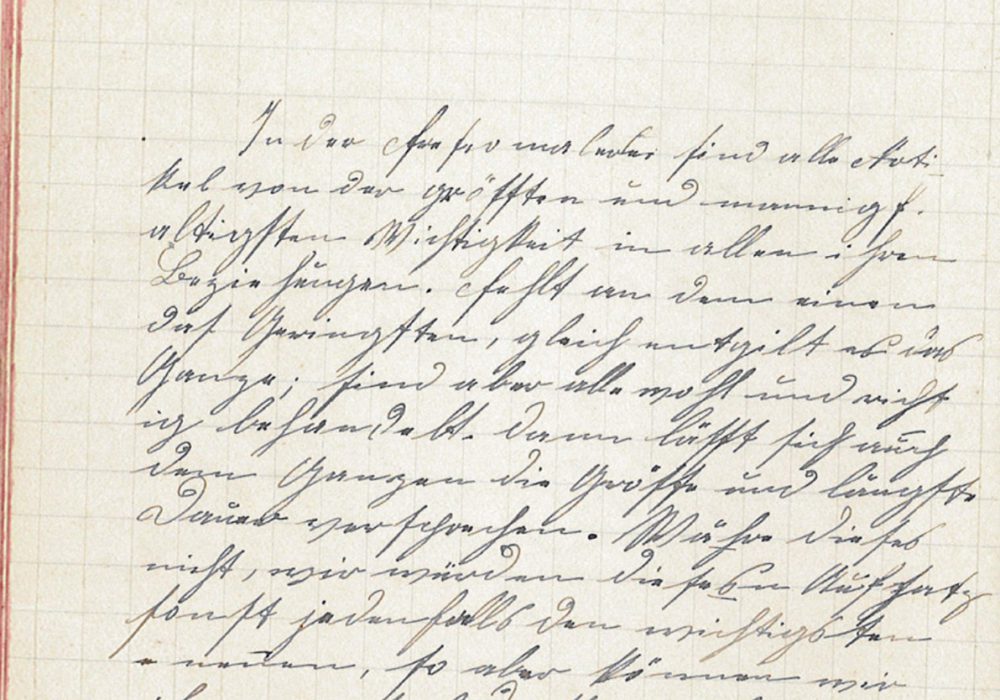 In der Freskomalerei sind alle Arti-
kel von der größten und mannigf-
altigsten Wichtigkeit in allen ihren
Beziehungen. Fehlt an dem einen
das Geringsten, gleich entgilt es das
Ganze; sind aber alle wohl und richt
ig behandelt. dann läßt sich auch
dem Ganzen die Größe und längste
Dauer versprechen. Währe dieses
nicht, wir würden diesesn Aufsatz
sonst jedenfalls den wichtigsten
nennen, so aber können wir